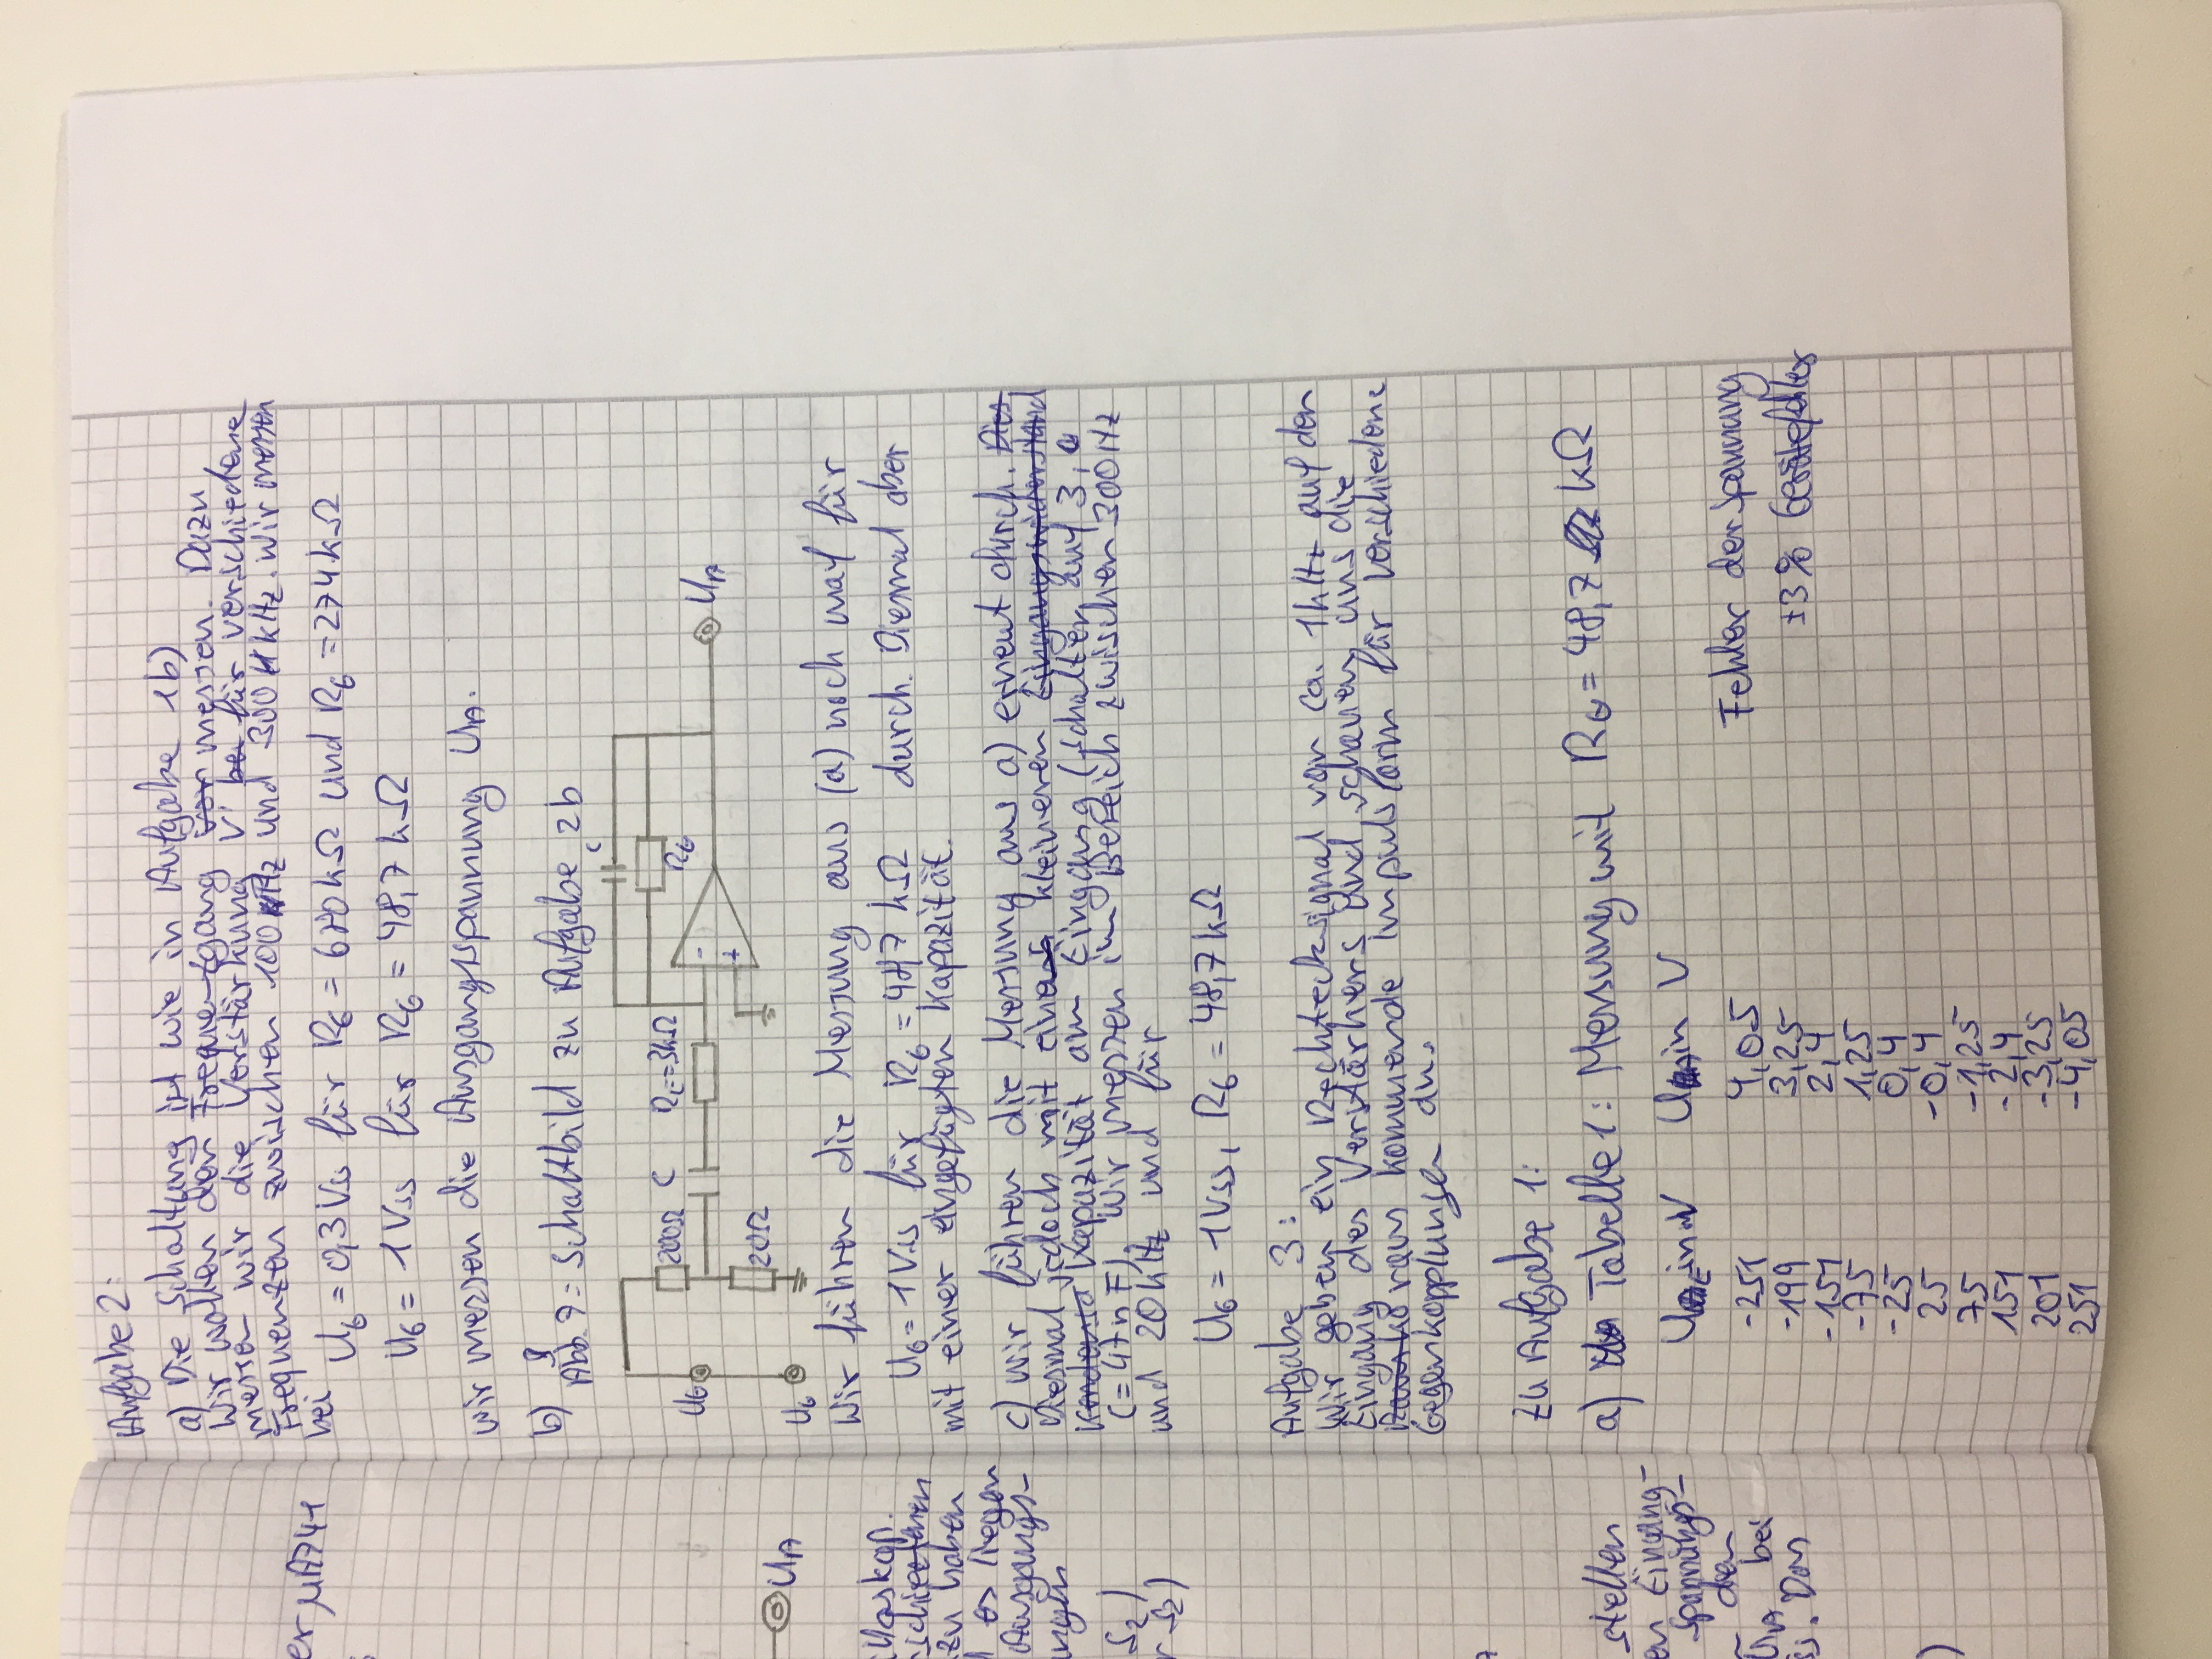 er μA741
UA
Moskop.
schiedenen
zu haben
es liegen
Ausgangs-
ungen
S2)
r S2)
stellen
en Eingang-
Spannungs-
den
UA bei
ss. Das
)
Aufgabe 2:
a) Die Schaltung ist wie in Aufgabe 1b)
Wir wollen den Frequenzgang messen. Dazu
messen wir die Verstärkung V für verschiedene
Frequenzen zwischen 100 Hz und 300 kHz. Wir messen
bei
UG = 0,3 Vss für RG = 680 kΩ und RG = 274 kΩ
UG = 1 Vss für RG = 48,7 kΩ
Wir messen die Ausgangsspannung UA.
b)
Abb. 7: Schaltbild zu Aufgabe 2b
C
200Ω C RE=3kΩ RG
UG - UA
+
20Ω
UG
Wir führen die Messung aus (a) noch mal für
UG = 1 Vss für RG = 48,7 kΩ durch. Diesmal aber
mit einer eingefügten Kapazität.
c) Wir führen die Messung aus a) erneut durch. Dies
Diesmal jedoch mit einer kleineren Eingangswiderstand
Kondensa Kapazität am Eingang (Schalter auf 3,
C = 47 nF). Wir messen im Bereich zwischen 300 Hz
und 20 kHz und für
UG = 1 Vss, RG = 48,7 kΩ
Aufgabe 3:
Wir geben ein Rechtecksignal von ca. 1 kHz auf den
Eingang des Verstärkers und schauen uns die
raus kommende Impulsform für verschiedene
Gegenkopplungen an.
Zu Aufgabe 1:
a) Tabelle 1: Messung mit RG = 48,7 kΩ
UE in mV UA in V
-251 4,05 Fehler der Spannung
-199 3,25 ±3% Gerätefehler
-151 2,4
-75 1,25
-25 0,4
25 -0,4
75 -1,25
151 -2,4
201 -3,25
251 -4,05